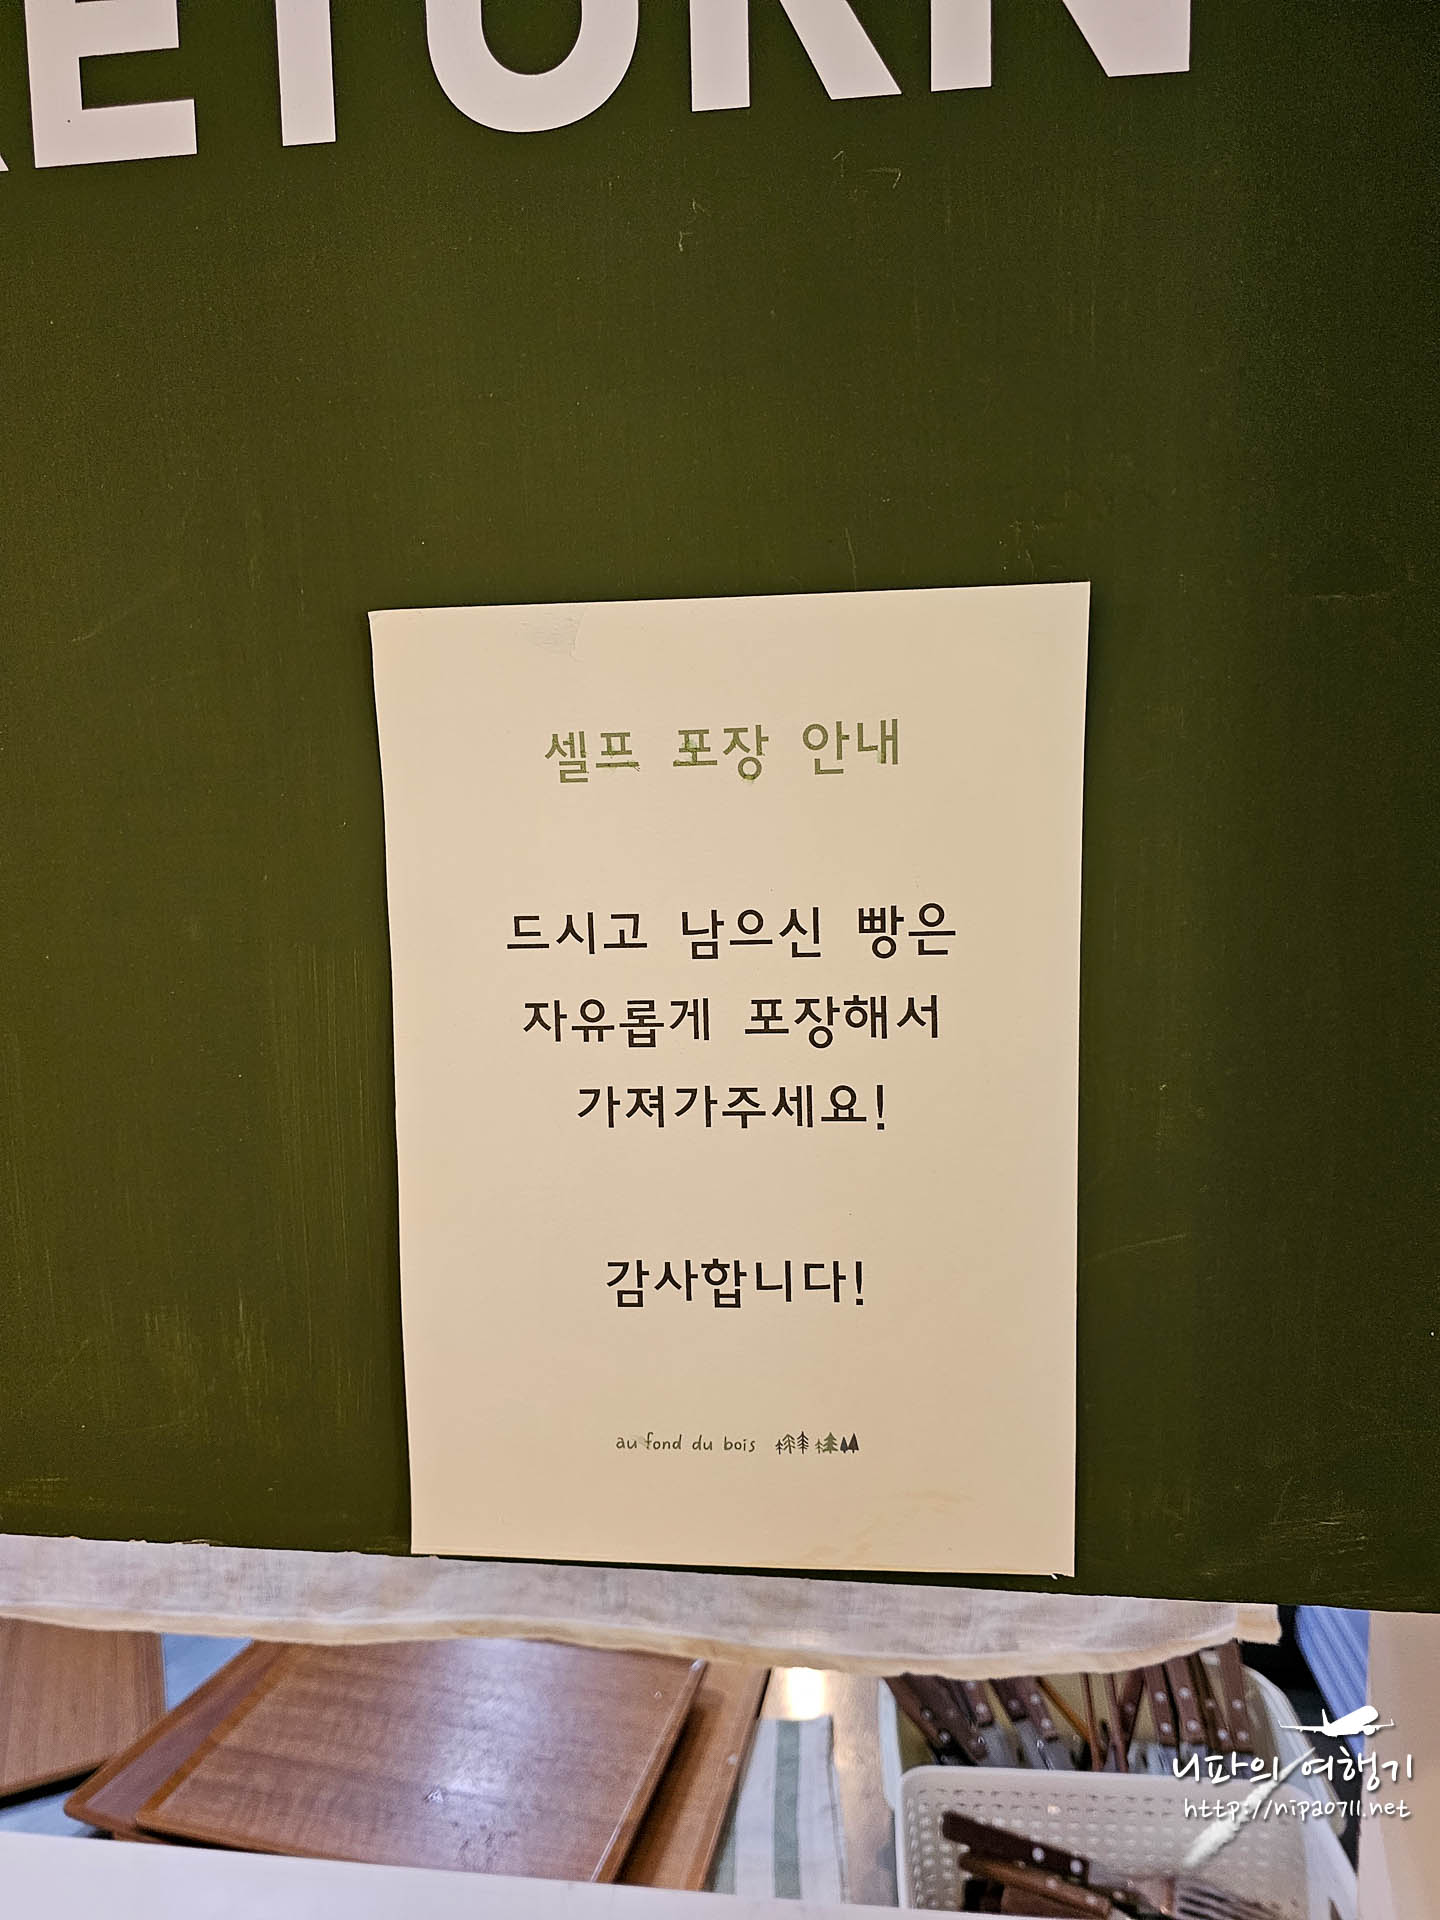 RETURN
셀프 포장 안내
드시고 남으신 빵은
자유롭게 포장해서
가져가주세요!
감사합니다!
au fond du bois
니파의 여행기
http://nipa0711.net